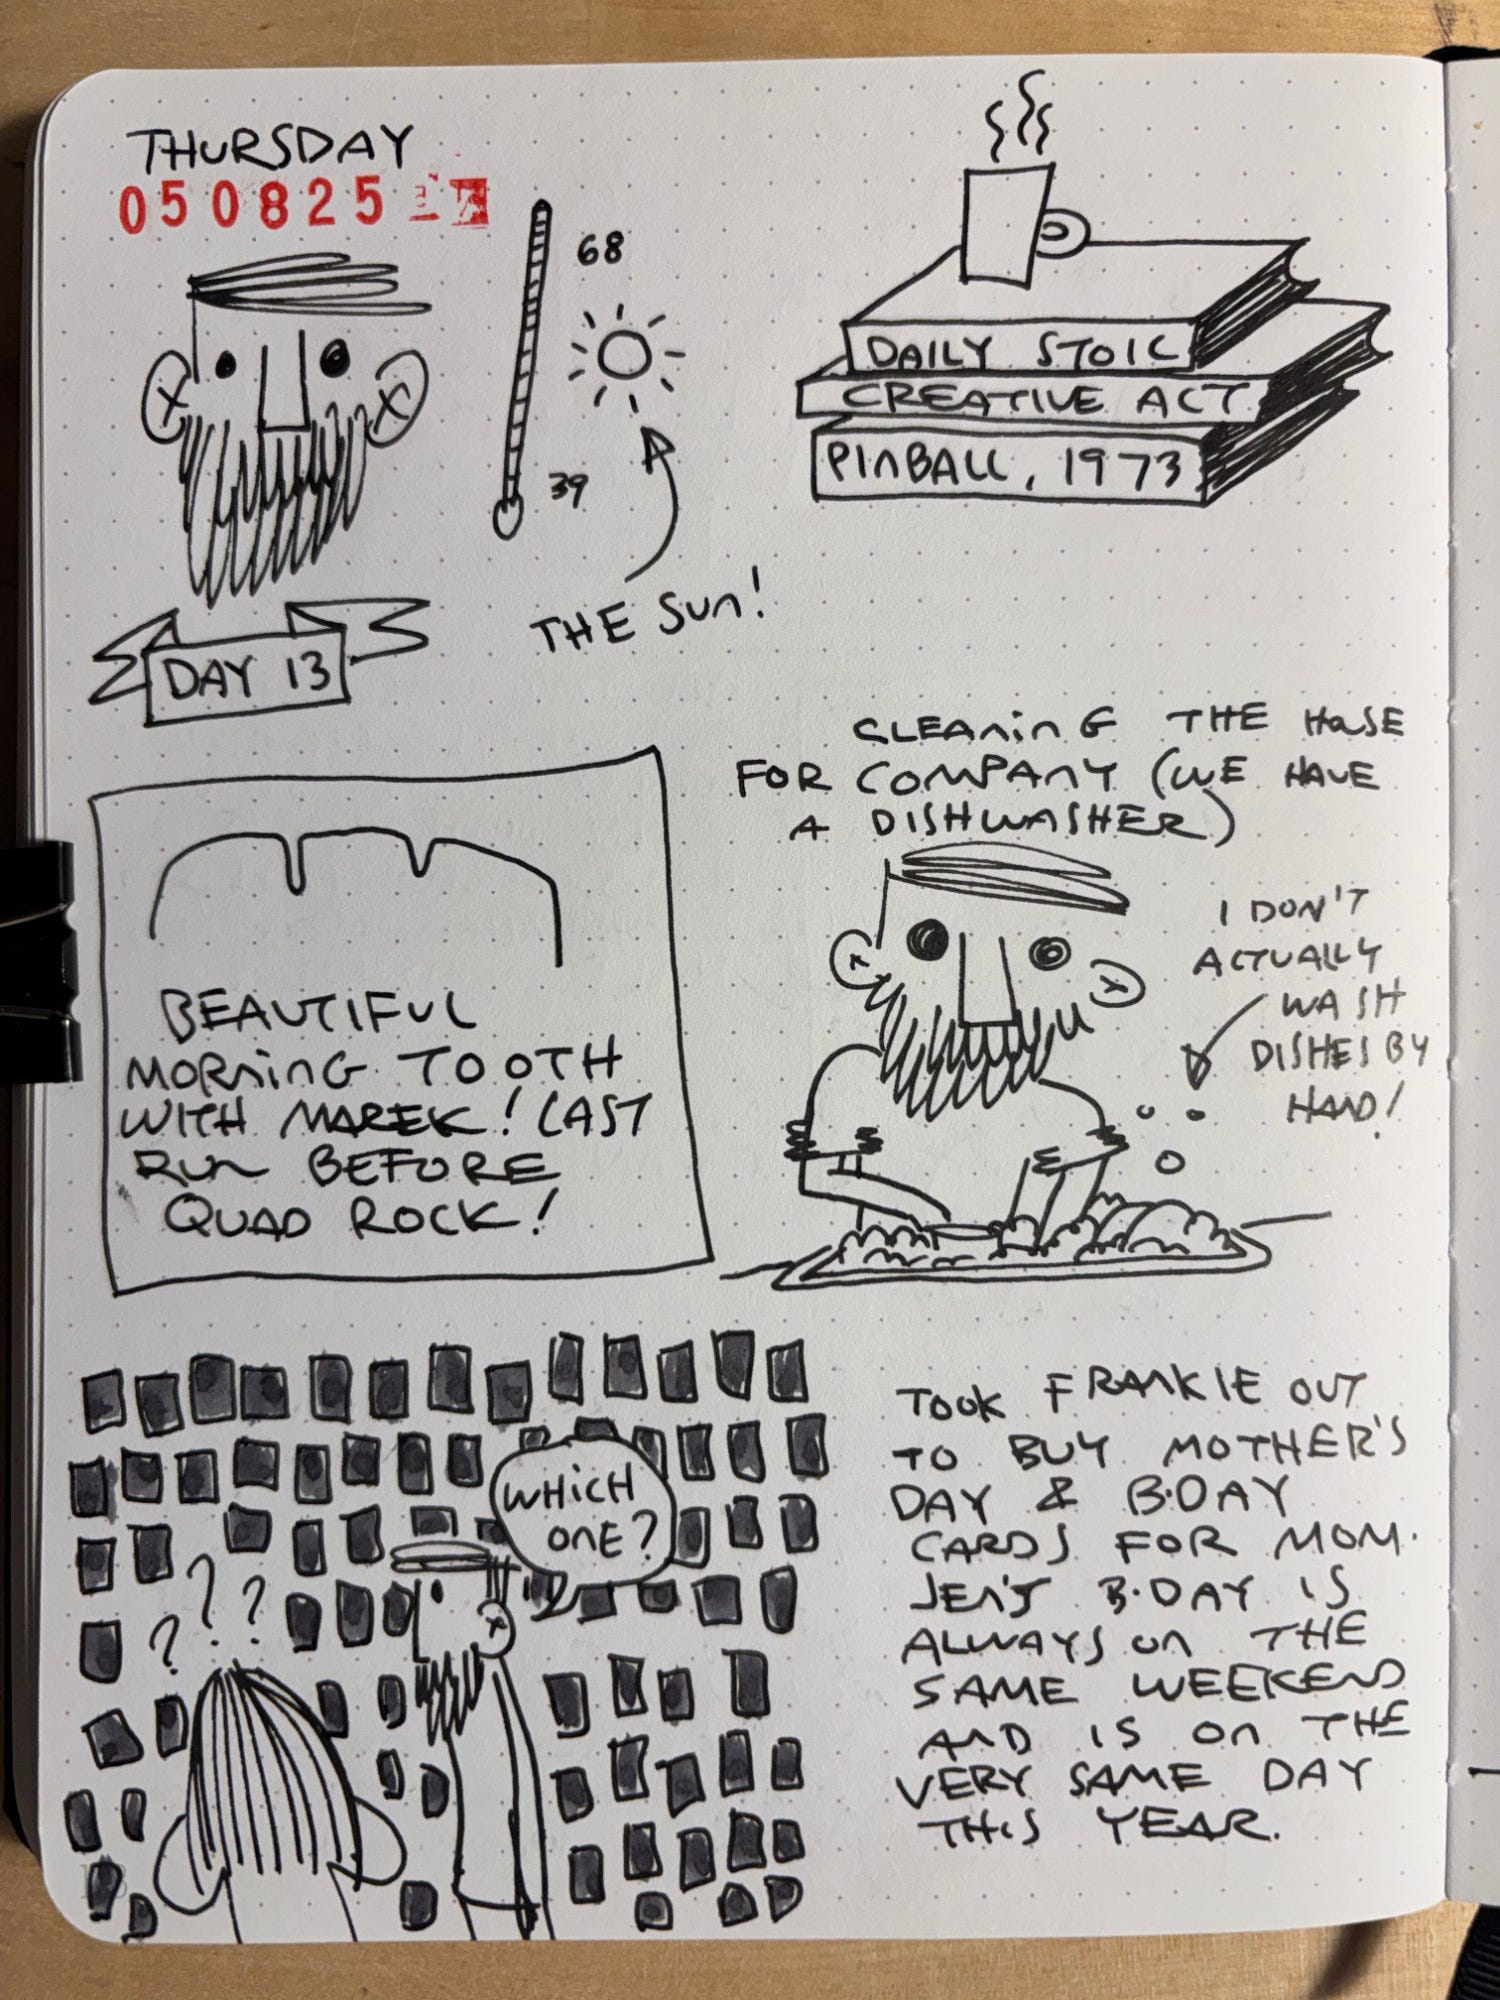 THURSDAY
050825
68
39
THE SUN!
DAY 13
DAILY STOIC
CREATIVE ACT
PINBALL, 1973
BEAUTIFUL
MORNING TOOTH
WITH MAREK! LAST
RUN BEFORE
QUAD ROCK!
CLEANING THE HOUSE
FOR COMPANY (WE HAVE
A DISHWASHER)
I DON'T
ACTUALLY
WASH
DISHES BY
HAND!
WHICH
ONE?
? ? ?
TOOK FRANKIE OUT
TO BUY MOTHER'S
DAY & B·DAY
CARDS FOR MOM.
JEN'S B·DAY IS
ALWAYS ON THE
SAME WEEKEND
AND IS ON THE
VERY SAME DAY
THIS YEAR.